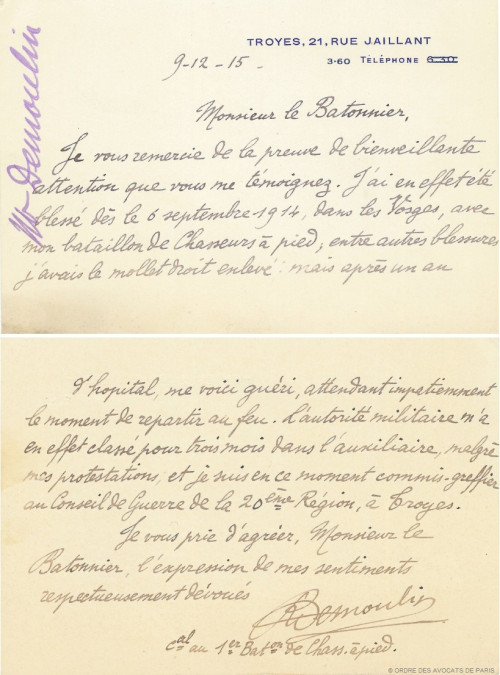 Mr Demoulin
TROYES, 21, RUE JAILLANT
3-60 TÉLÉPHONE 6-30
9-12-15-
Monsieur le Batonnier,
Je vous remercie de la preuve de bienveillante
attention que vous me témoignez. J'ai en effet été
blessé dès le 6 septembre 1914, dans les Vosges, avec
mon bataillon de Chasseurs à pied; entre autres blessures
j'avais le mollet droit enlevé: mais après un an
d'hopital, me voici guéri, attendant impatiemment
le moment de repartir au feu. L'autorité militaire m'a
en effet classé pour trois mois dans l'auxiliaire, malgré
mes protestations, et je suis en ce moment commis-greffier
au Conseil de Guerre de la 20ème Région, à Troyes.
Je vous prie d'agréer, Monsieur le
Batonnier, l'expression de mes sentiments
respectueusement dévoués
RDemoulin
cal au 1er Baton de Chass. à pied.
© ORDRE DES AVOCATS DE PARIS